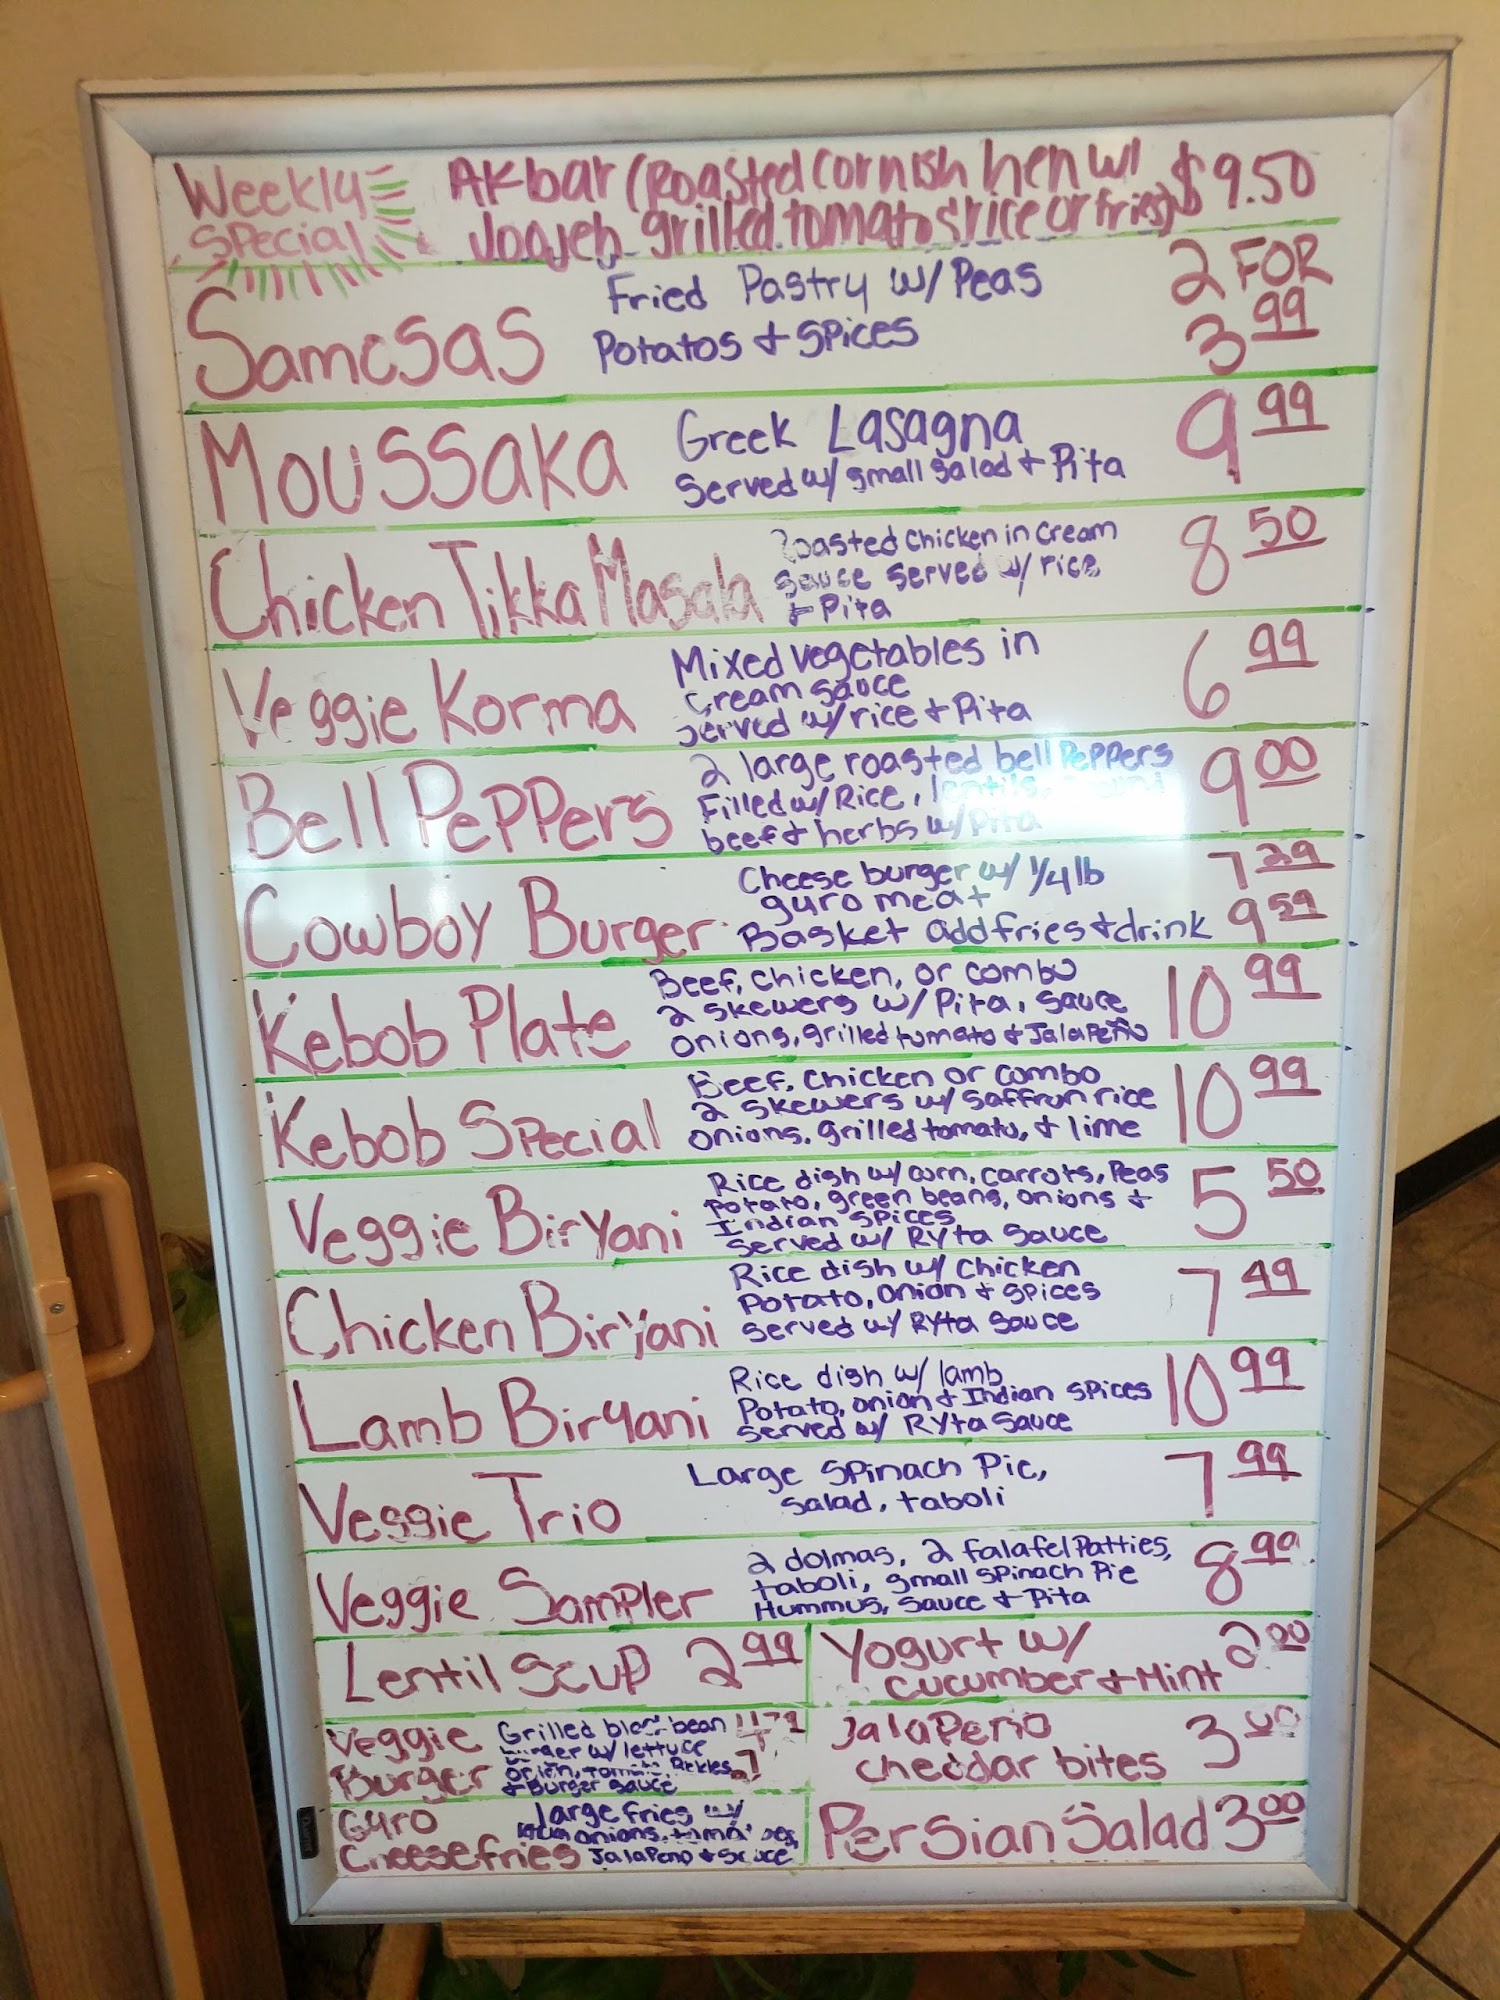 Weekly Special
AKbar (Roasted cornish hen w/
Joojeh grilled tomatos rice or fries) $9.50
Samosas
Fried Pastry w/ Peas
Potatos + spices
2 FOR
3 99
Moussaka
Greek Lasagna
Served w/ small salad + Pita
9 99
Chicken Tikka Masala
Roasted Chicken in cream
sauce served w/ rice
+ Pita
8 50
Veggie Korma
Mixed vegetables in
cream sauce
served w/ rice + Pita
6 99
Bell Peppers
2 large roasted bell Peppers
Filled w/ Rice, lentils,
beef + herbs w/ Pita
9 00
Cowboy Burger
Cheese burger w/ 1/4 lb
gyro meat
7 29
Basket add fries + drink 9 59
Kebob Plate
Beef, chicken, or combo
2 skewers w/ Pita, sauce
onions, grilled tomato + Jalapeño
10 99
Kebob Special
Beef, chicken or combo
2 skewers w/ saffron rice
onions, grilled tomato, + lime
10 99
Veggie Biryani
Rice dish w/ corn, carrots, Peas
Potato, green beans, onions +
Indian spices
Served w/ Ryta Sauce
5 50
Chicken Biryani
Rice dish w/ Chicken
Potato, onion + spices
served w/ Ryta Sauce
7 49
Lamb Biryani
Rice dish w/ lamb
Potato, onion + Indian spices
served w/ Ryta Sauce
10 99
Veggie Trio
Large Spinach Pie,
salad, taboli
7 99
Veggie Sampler
2 dolmas, 2 falafel Patties,
taboli, small spinach Pie
Hummus, sauce + Pita
8 99
Lentil Soup 2 99
Yogurt w/
cucumber + Mint
2 00
Veggie
Burger
Grilled black bean
burger w/ lettuce
onion, tomato, Pickles
+ Burger sauce
Jalapeno
cheddar bites
3 00
Gyro
Cheese fries
large fries w/
onions, tomatoes,
Jalapeno + sauce
Persian Salad 3 00